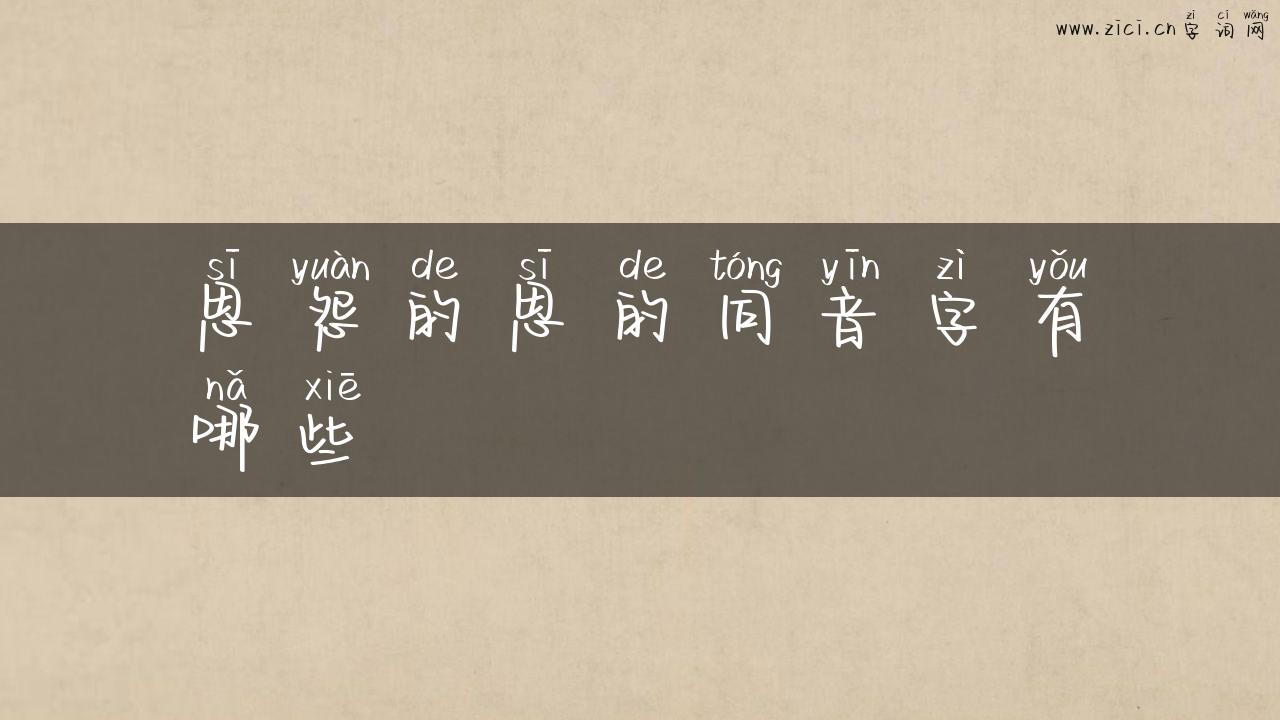 zì cí wǎng
www.zici.cn 字词网
sī yuàn de sī de tóng yīn zì yǒu
恩怨的恩的同音字有
nǎ xiē
哪些